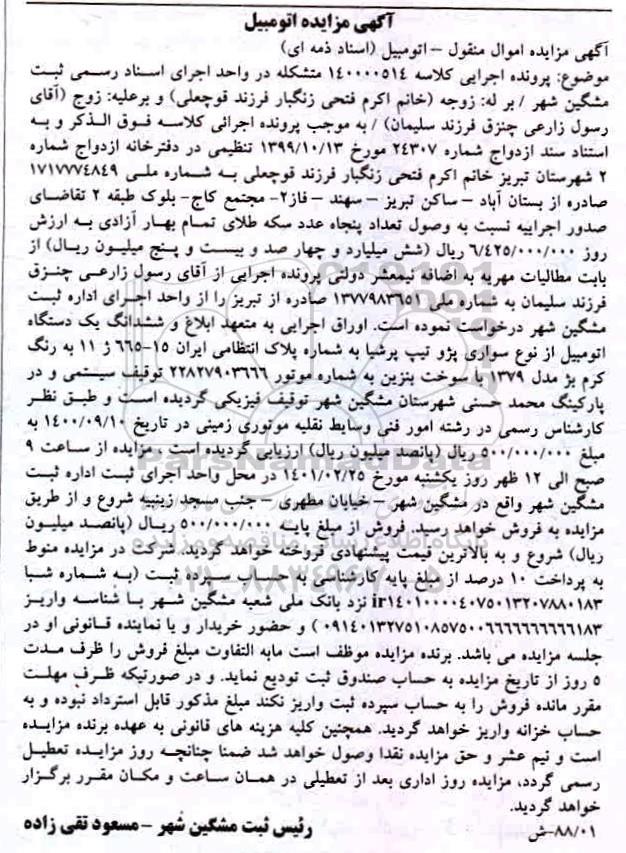 آگهی مزایده اتومبیل
آگهی مزایده اموال منقول – اتومبیل (اسناد ذمه ای)
موضوع: پرونده اجرایی کلاسه ۱۴۰۰۰۰۵۱۴ متشکله در واحد اجرای اسناد رسمی ثبت
مشگین شهر / بر له: زوجه (خانم اکرم فتحی زنگبار فرزند قوچعلی) و برعلیه: زوج (آقای
رسول زارعی چنزق فرزند سلیمان) / به موجب پرونده اجرائی کلاسه فوق الذکر و به
استناد سند ازدواج شماره ۲۴۳۰۷ مورخ ۱۳۹۹/۱۰/۱۳ تنظیمی در دفترخانه ازدواج شماره
۲ شهرستان تبریز خانم اکرم فتحی زنگبار فرزند قوچعلی به شماره ملی ۱۷۱۷۷۷۴۸۴۹
صادره از بستان آباد – ساکن تبریز – سهند – فاز۲- مجتمع کاج- بلوک طبقه ۲ تقاضای
صدور اجراییه نسبت به وصول تعداد پنجاه عدد سکه طلای تمام بهار آزادی به ارزش
روز ۶/۴۲۵/۰۰۰/۰۰۰ ریال (شش میلیارد و چهار صد و بیست و پنج میلیون ریال) از
بابت مطالبات مهریه به اضافه نیمعشر دولتی پرونده اجرایی از آقای رسول زارعی چنزق
فرزند سلیمان به شماره ملی ۱۳۷۷۹۸۳۶۵۱ صادره از تبریز را از واحد اجرای اداره ثبت
مشگین شهر درخواست نموده است. اوراق اجرایی به متعهد ابلاغ و ششدانگ یک دستگاه
اتومبیل از نوع سواری پژو تیپ پرشیا به شماره پلاک انتظامی ایران ۱۵-۶۶۵ ژ ۱۱ به رنگ
کرم بژ مدل ۱۳۷۹ با سوخت بنزین به شماره موتور ۲۲۸۲۷۹۰۳۶۶۶ توقیف سیستمی و در
پارکینگ محمد حسنی شهرستان مشگین شهر توقیف فیزیکی گردیده است و طبق نظر
کارشناس رسمی در رشته امور فنی وسایط نقلیه موتوری زمینی در تاریخ ۱۴۰۰/۰۹/۱۰ به
مبلغ ۵۰۰/۰۰۰/۰۰۰ ریال (پانصد میلیون ریال) ارزیابی گردیده است ، مزایده از ساعت ۹
صبح الی ۱۲ ظهر روز یکشنبه مورخ ۱۴۰۱/۰۲/۲۵ در محل واحد اجرای ثبت اداره ثبت
مشگین شهر واقع در مشگین شهر – خیابان مطهری – جنب مسجد زینبیه شروع و از طریق
مزایده به فروش خواهد رسید. فروش از مبلغ پایه ۵۰۰/۰۰۰/۰۰۰ ریال (پانصد میلیون
ریال) شروع و به بالاترین قیمت پیشنهادی فروخته خواهد گردید. شرکت در مزایده منوط
به پرداخت ۱۰ درصد از مبلغ پایه کارشناسی به حساب سپرده ثبت (به شماره شبا
ir۱۴۰۱۰۰۰۰۴۰۷۵۰۱۳۲۰۷۸۸۰۱۸۳ نزد بانک ملی شعبه مشگین شهر با شناسه واریز
۰۹۱۴۰۱۳۲۷۵۱۰۸۵۷۵۰۰۶۶۶۶۶۶۶۶۶۶۱۸۳ ) و حضور خریدار و یا نماینده قانونی او در
جلسه مزایده می باشد. برنده مزایده موظف است مابه التفاوت مبلغ فروش را ظرف مدت
۵ روز از تاریخ مزایده به حساب صندوق ثبت تودیع نماید. و در صورتیکه ظرف مهلت
مقرر مانده فروش را به حساب سپرده ثبت واریز نکند مبلغ مذکور قابل استرداد نبوده و به
حساب خزانه واریز خواهد گردید. همچنین کلیه هزینه های قانونی به عهده برنده مزایده
است و نیم عشر و حق مزایده نقدا وصول خواهد شد ضمنا چنانچه روز مزایده تعطیل
رسمی گردد، مزایده روز اداری بعد از تعطیلی در همان ساعت و مکان مقرر برگزار
خواهد گردید.
۸۸/۰۱-ش رئیس ثبت مشگین شهر –مسعود تقی زاده